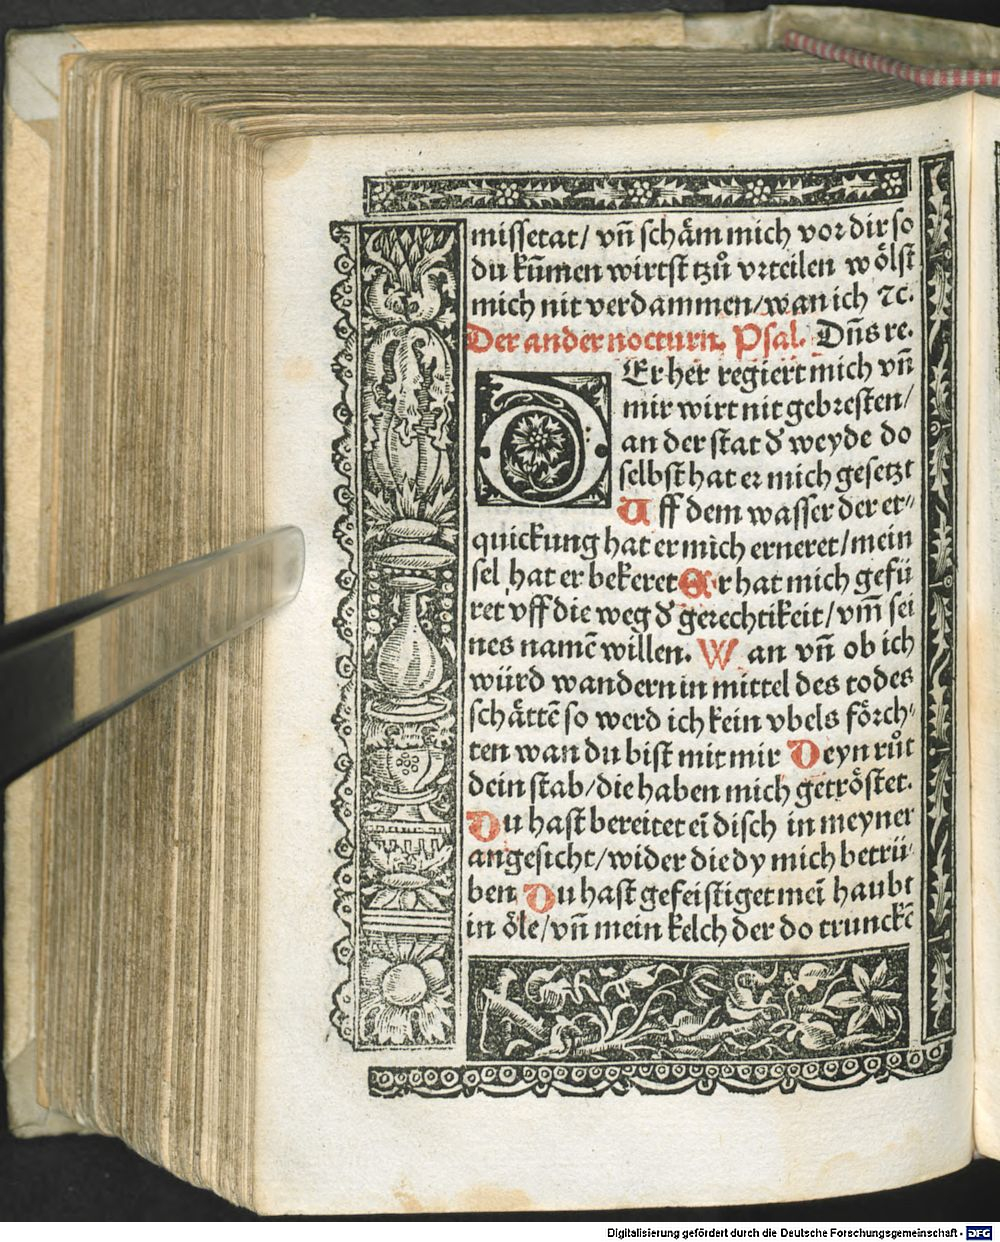 missetat/ vn̄ schäm mich vor dir so
du kūmen wirtst tzů vrteilen wölst
mich nit verdammen/wan ich ⁊c.
Der ander nocturn. Psal. Dn̄s re.
DEr her regiert mich vn̄
mir wirt nit gebresten/
an der stat d' weyde do
selbst hat er mich gesetzt
Uff dem wasser der er⸗
quickung hat er mich erneret/mein
sel hat er bekeret Er hat mich gefü
ret vff die weg d' gerechtikeit/vm̄ sei
nes namē willen. Wan vn̄ ob ich
würd wandern in mittel des todes
schättē so werd ich kein vbels förch⸗
ten wan du bist mit mir Deyn růt
dein stab/die haben mich getröstet.
Du hast bereitet eī disch in meyner
angesicht/wider die dy mich betrü⸗
ben. Du hast gefeistiget meī haubt
in öle/vn̄ mein kelch der do trunckē
Digitalisierung gefördert durch die Deutsche Forschungsgemeinschaft - DFG